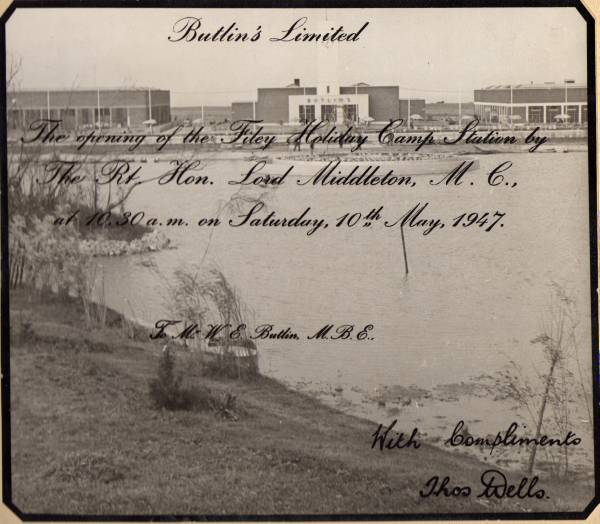 Butlin's Limited
BUTLIN'S
The opening of the Filey Holiday Camp Station by
The Rt. Hon. Lord Middleton, M. C.,
at 10.30 a.m. on Saturday, 10th May, 1947.
To Mr W. E. Butlin, M.B.E.,
With Compliments
Thos Wells.